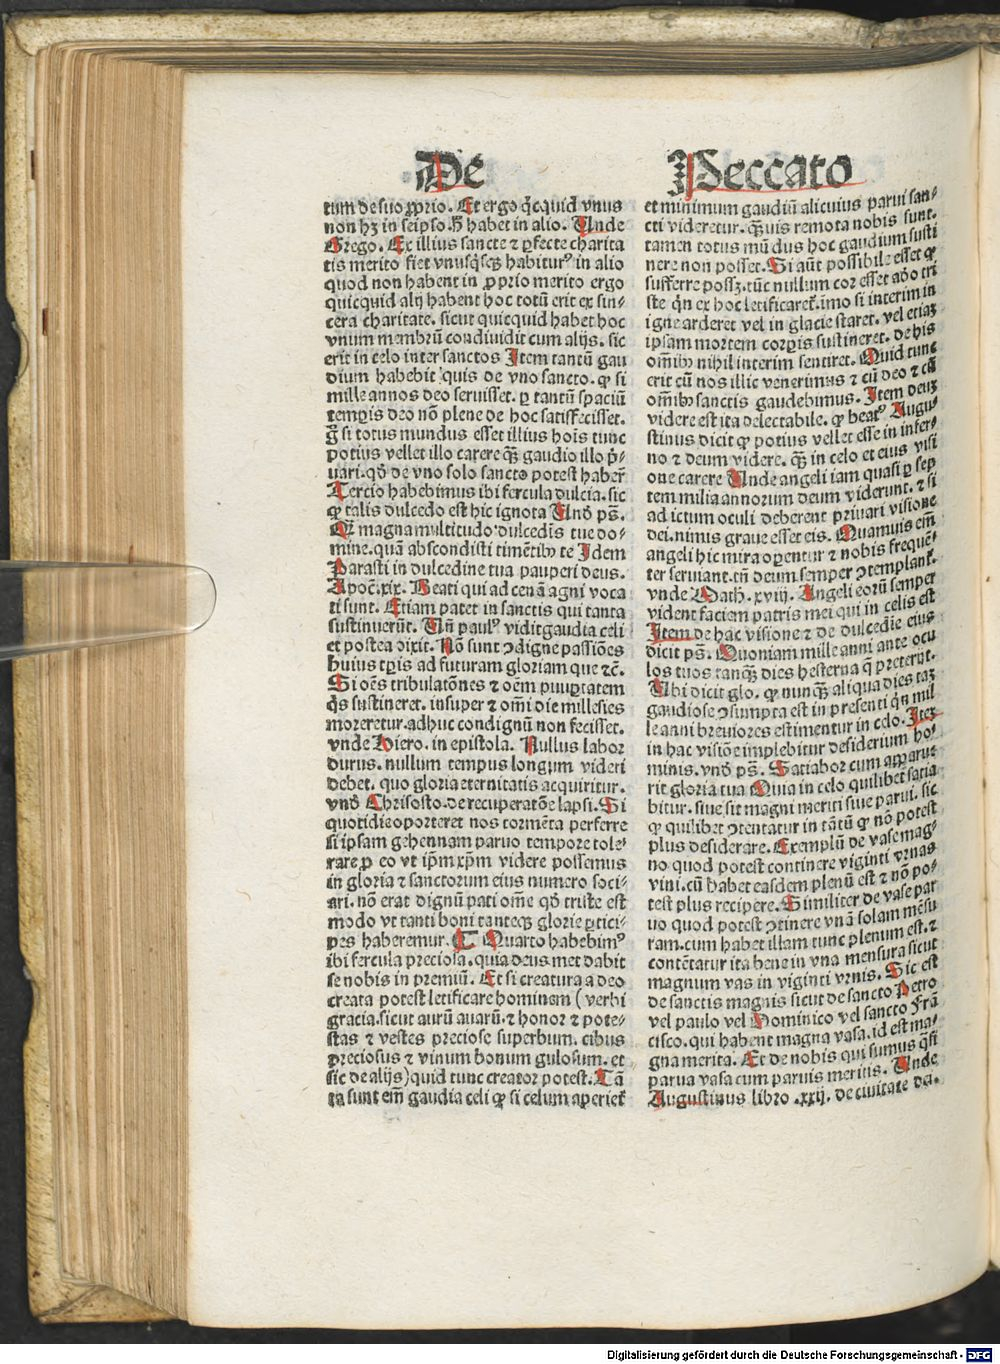 De
Peccato
tum de suo ꝓprio. Et ergo qͥcquid vnus
non hꝫ in seipso. Sꝫ habet in alio. Vnde
Grego. Ex illius sancte ⁊ ꝑfecte charita
tis merito fiet vnusqͥsqꝫ habitur⁹ in alio
quod non habent in ꝓprio merito ergo
quicquid alij habent hoc totū erit ex sin⸗
cera charitate. sicut quicquid habet hoc
vnum membrū condiuidit cum alijs. sic
erit in celo inter sanctos Item tantū gau
dium habebit quis de vno sancto. ꝙ si
mille annos deo seruisset. ꝑ tantū spaciū
temꝑis deo nō plene de hoc satisfecisset.
g̃ si totus mundus esset illius hoīs tunc
potius vellet illo carere qꝫ̃ gaudio illo p̃⸗
uari. qd̓ de vno solo sancto potest haber̄
Tercio habebimus ibi fercula dulcia. sic
ꝙ talis dulcedo est hic ignota Vnd̓ pš.
Qꝫ̃ magna multitudo dulcedīs tue do⸗
mine. quā abscondisti timētibꝫ te Idem
Parasti in dulcedine tua pauperi deus.
Apoc̄. xix. Beati qui ad cenā agni voca
ti sunt. Etiam patet in sanctis qui tanta
sustinuerūt. Vn̄ paul⁹ vidit gaudia celi
et postea dixit. Nō sunt ꝯdigne passiōes
huius tꝑis ad futuram gloriam que ⁊c̄.
Si oēs tribulatōnes ⁊ oēm puuꝑtatem
qͥs sustineret. insuper ⁊ om̄i die millesies
moreretur. adhuc condignū non fecisset.
vnde Hiero. in epistola. Nullus labor
durus. nullum tempus longum videri
debet. quo gloria eternitatis acquiritur.
vnd̓ Chrisosto. de recuperatōe lapsi. Si
quotidie oporteret nos tormēta perferre
si ipsam gehennam paruo tempore tole⸗
rare ꝑ eo vt ip̄m xp̄m videre possemus
in gloria ⁊ sanctorum eius numero soci⸗
ari. nō erat dignū pati om̄e qd̓ triste est
modo vt tanti boni tanteqꝫ glorie ꝑtici⸗
pes haberemur. ¶ Quarto habebim⁹
ibi fercula preciosa. quia deus met dabit
se nobis in premiū. Et si creatura a deo
creata potest letificare hominem (verbi
gracia. sicut aurū auarū. ⁊ honor ⁊ pote⸗
stas ⁊ vestes preciose superbum. cibus
preciosus ⁊ vinum bonum gulosum. et
sic de alijs) quid tunc creator potest. Tā
ta sunt em̄ gaudia celi ꝙ si celum aperiet̄
et minimum gaudiū alicuius parui san⸗
cti videretur. qꝫ̃uis remota nobis sunt.
tamen totus mūdus hoc gaudium susti
nere non posset. Si aūt possibile esset ꝙ
sufferre possꝫ. tūc nullum cor esset adeo tri
ste qn̄ ex hoc letificaret̄. īmo si interim in
igne arderet vel in glacie staret. vel etiaꝫ
ipsam mortem corꝑis sustineret. de his
om̄ibꝫ nihil interim sentiret. Quid tunc
erit cū nos illic venerimus ⁊ cū deo ⁊ cū
om̄ibꝫ sanctis gaudebimus. Item deuꝫ
videre est ita delectabile. ꝙ beat⁹ Augu⸗
stinus dicit ꝙ potius vellet esse in infer⸗
no ⁊ deum videre. qꝫ̃ in celo et eius visi
one carere Vnde angeli iam quasi ꝑ sep
tem milia annorum deum viderunt. ⁊ si
ad ictum oculi deberent priuari visione
dei. nimis graue esset eis. Quamuis em̄
angeli hic mira oꝑentur ⁊ nobis frequē⸗
ter seruiant. tn̄ deum semper ꝯtemplant̄.
vnde Math. xviij. Angeli eorū semper
vident faciem patris mei qui in celis est
Item de hac visione ⁊ de dulcedīe eius
dicit pš. Quoniam mille anni ante ocu
los tuos tanqꝫ̃ dies hesterna q̄ preterijt.
Ubi dicit glo. ꝙ nunqꝫ̃ aliqua dies taꝫ
gaudiose ꝯsumpta est in presenti qͥn mil
le anni breuiores estimentur in celo. Iteꝫ
in hac visiōe implebitur desiderium ho⸗
minis. vnd̓ pš. Satiabor cum apparue
rit gloria tua Quia in celo quilibet satia
bitur. siue sit magni meriti siue parui. sic
ꝙ quilibet ꝯtentatur in tātū ꝙ nō potest
plus desiderare. Exemplū de vase mag⸗
no quod potest continere viginti vrnas
vini. cū habet easdem plenū est ⁊ nō po⸗
test plus recipere. Similiter de vase par
uo quod potest ꝯtinere vnā solam mēsu
ram. cum habet illam tunc plenum est. ⁊
contētatur ita bene in vna mensura sicut
magnum vas in viginti vrnis. Sic est
de sanctis magnis sicut de sancto Petro
vel paulo vel Dominico vel sancto Frā
cisco. qui habent magna vasa. id est ma⸗
gna merita. Et de nobis qui sumus qͣsi
parua vasa cum paruis meritis. Vnde
Augustinus libro .xxij. de ciuitate da.
Digitalisierung gefördert durch die Deutsche Forschungsgemeinschaft - DFG